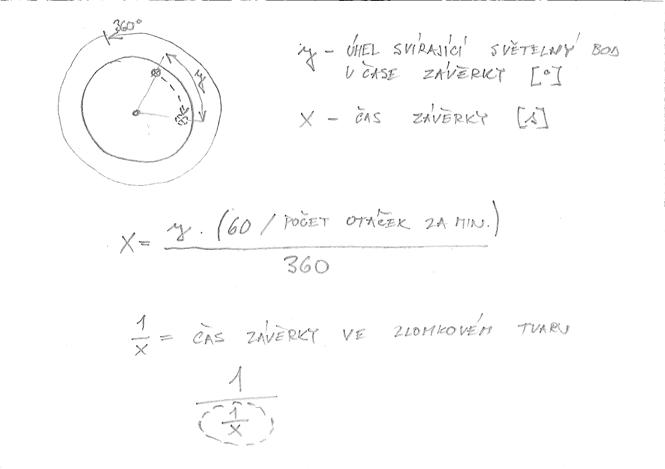 360°
y
y - ÚHEL SVÍRAJÍCÍ SVĚTELNÝ BOD
V ČASE ZÁVĚRKY [°]
X - ČAS ZÁVĚRKY [s]
X = y . (60 / POČET OTÁČEK ZA MIN.)
360
1/X = ČAS ZÁVĚRKY VE ZLOMKOVÉM TVARU
1
1/X